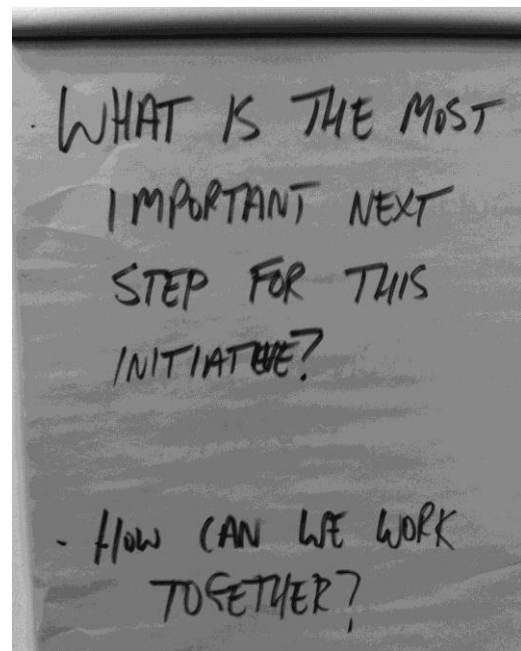 · WHAT IS THE MOST
IMPORTANT NEXT
STEP FOR THIS
INITIATIVE?
- HOW CAN WE WORK
TOGETHER?